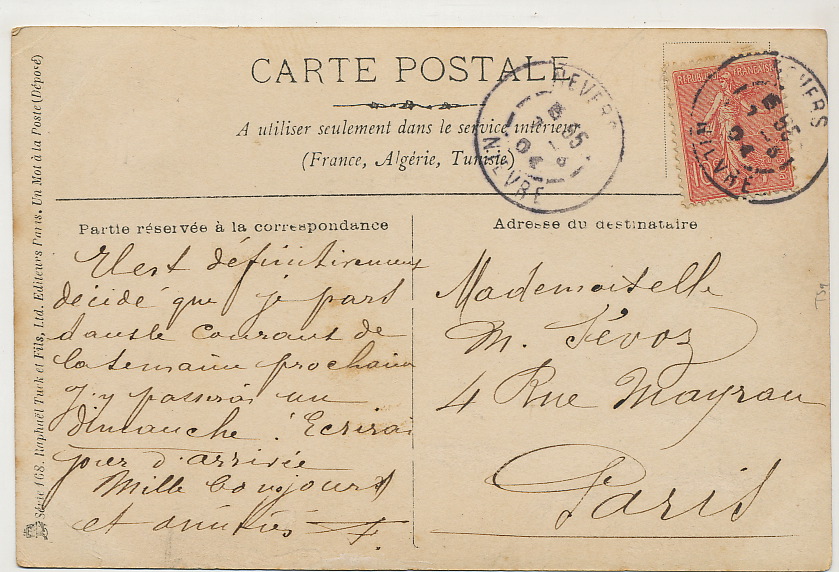 CARTE POSTALE
A utiliser seulement dans le service intérieur
(France, Algérie, Tunisie)
NEVERS
NIEVRE
REPUBLIQUE FRANÇAISE
NEVERS
NIEVRE
Partie réservée à la correspondance
Il est définitivement
décidé que je pars
dans le courant de
la semaine prochaine
J'y passerai un
dimanche. Ecrirai
jour d'arrivée
Mille bonjours
et amitiés
Adresse du destinataire
Mademoiselle
M. Févoz
4 Rue Mayran
Paris
Série 168. Raphaël Tuck et Fils, Ltd. Editeurs Paris. Un Mot à la Poste (Déposé)